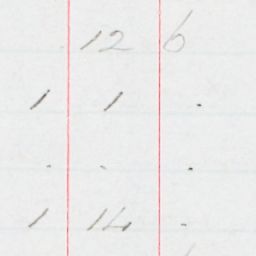 12 6
1 1 .
. . .
1 14 .